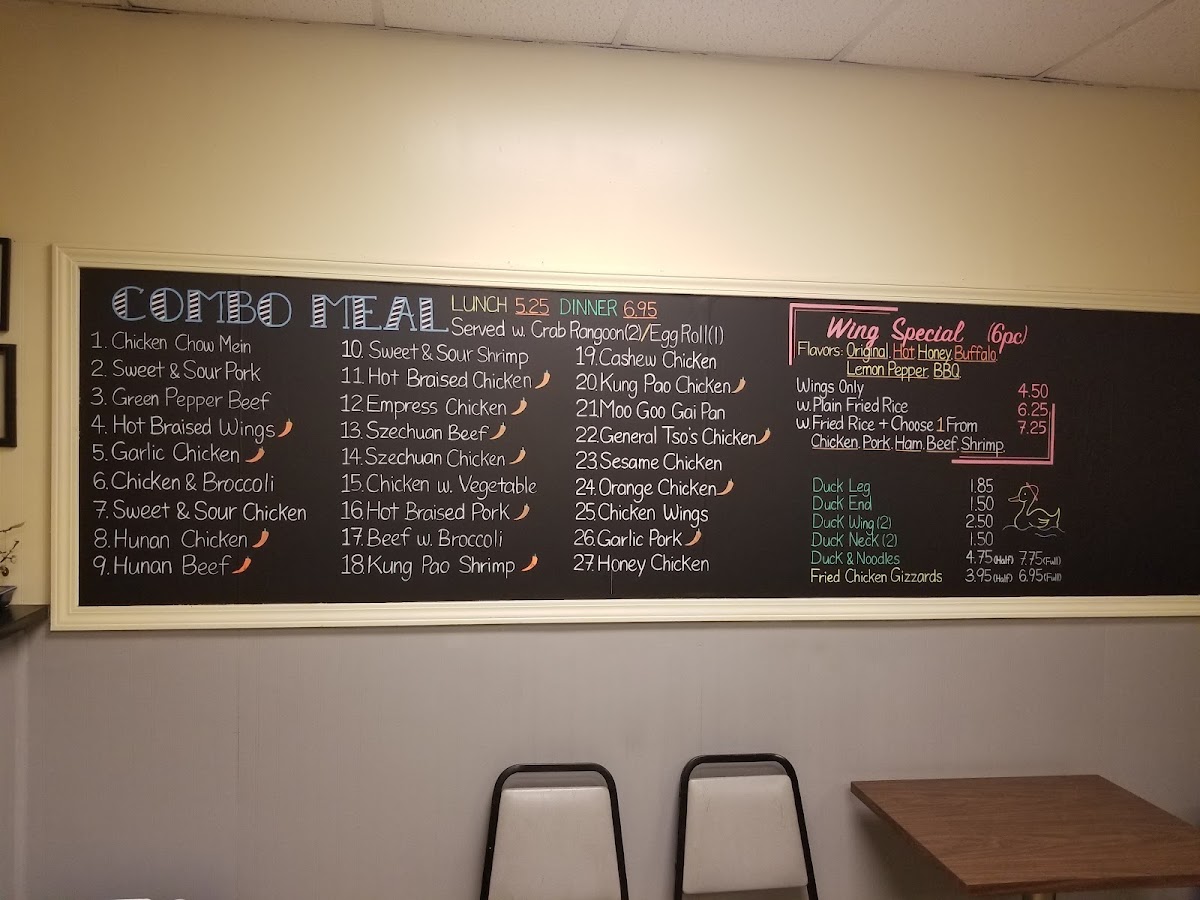 COMBO MEAL
LUNCH 5.25 DINNER 6.95
Served w. Crab Rangoon(2)/Egg Roll(1)
1. Chicken Chow Mein
2. Sweet & Sour Pork
3. Green Pepper Beef
4. Hot Braised Wings
5. Garlic Chicken
6. Chicken & Broccoli
7. Sweet & Sour Chicken
8. Hunan Chicken
9. Hunan Beef
10. Sweet & Sour Shrimp
11. Hot Braised Chicken
12. Empress Chicken
13. Szechuan Beef
14. Szechuan Chicken
15. Chicken w. Vegetable
16. Hot Braised Pork
17. Beef w. Broccoli
18 Kung Pao Shrimp
19. Cashew Chicken
20. Kung Pao Chicken
21. Moo Goo Gai Pan
22. General Tso's Chicken
23. Sesame Chicken
24. Orange Chicken
25. Chicken Wings
26. Garlic Pork
27. Honey Chicken
Wing Special (6pc)
Flavors: Original. Hot. Honey. Buffalo.
Lemon Pepper. BBQ.
Wings Only 4.50
w. Plain Fried Rice 6.25
w. Fried Rice + Choose 1 From 7.25
Chicken. Pork. Ham. Beef. Shrimp.
Duck Leg 1.85
Duck End 1.50
Duck Wing (2) 2.50
Duck Neck (2) 1.50
Duck & Noodles 4.75 (Half) 7.75 (Full)
Fried Chicken Gizzards 3.95 (Half) 6.95 (Full)